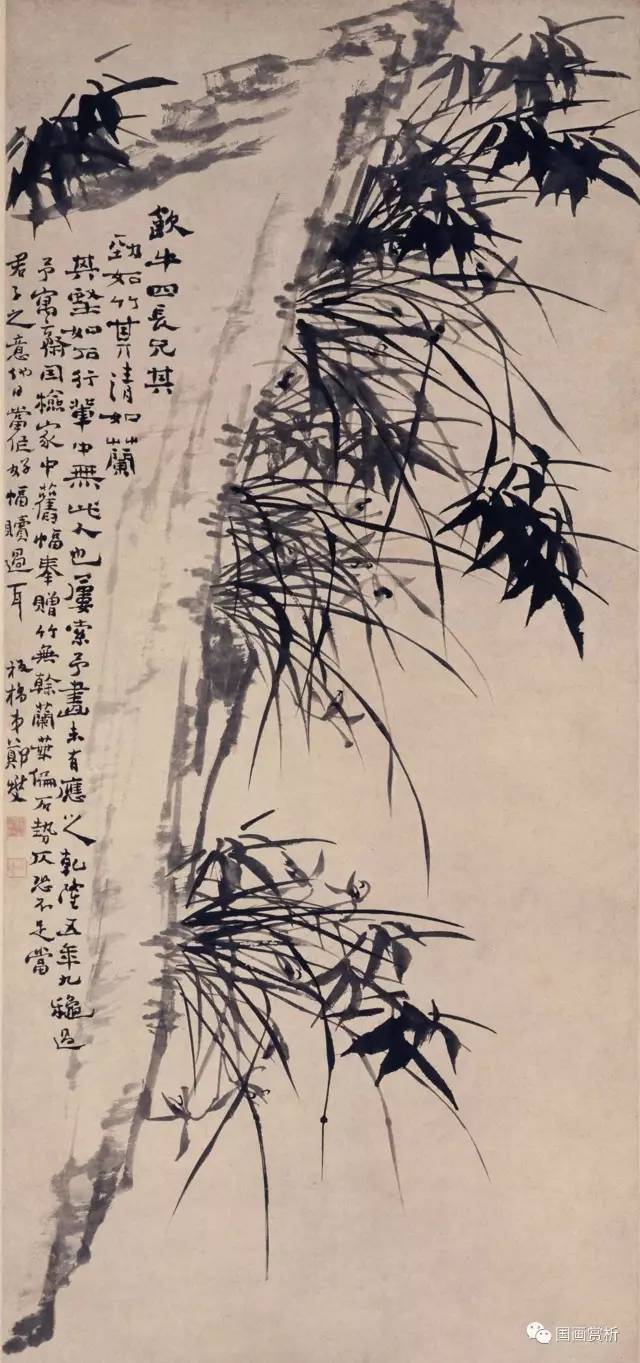 四長兄其
勁如竹其清如蘭
其堅如石行輩中無此人也屢索予畫未有應之乾隆五年九穐過
予寓齋因檢家中舊幅奉贈竹無榦蘭葉偏石勢仄恐不足當
君子之意他日當作好幅贖過耳 板橋弟鄭燮
国画赏析